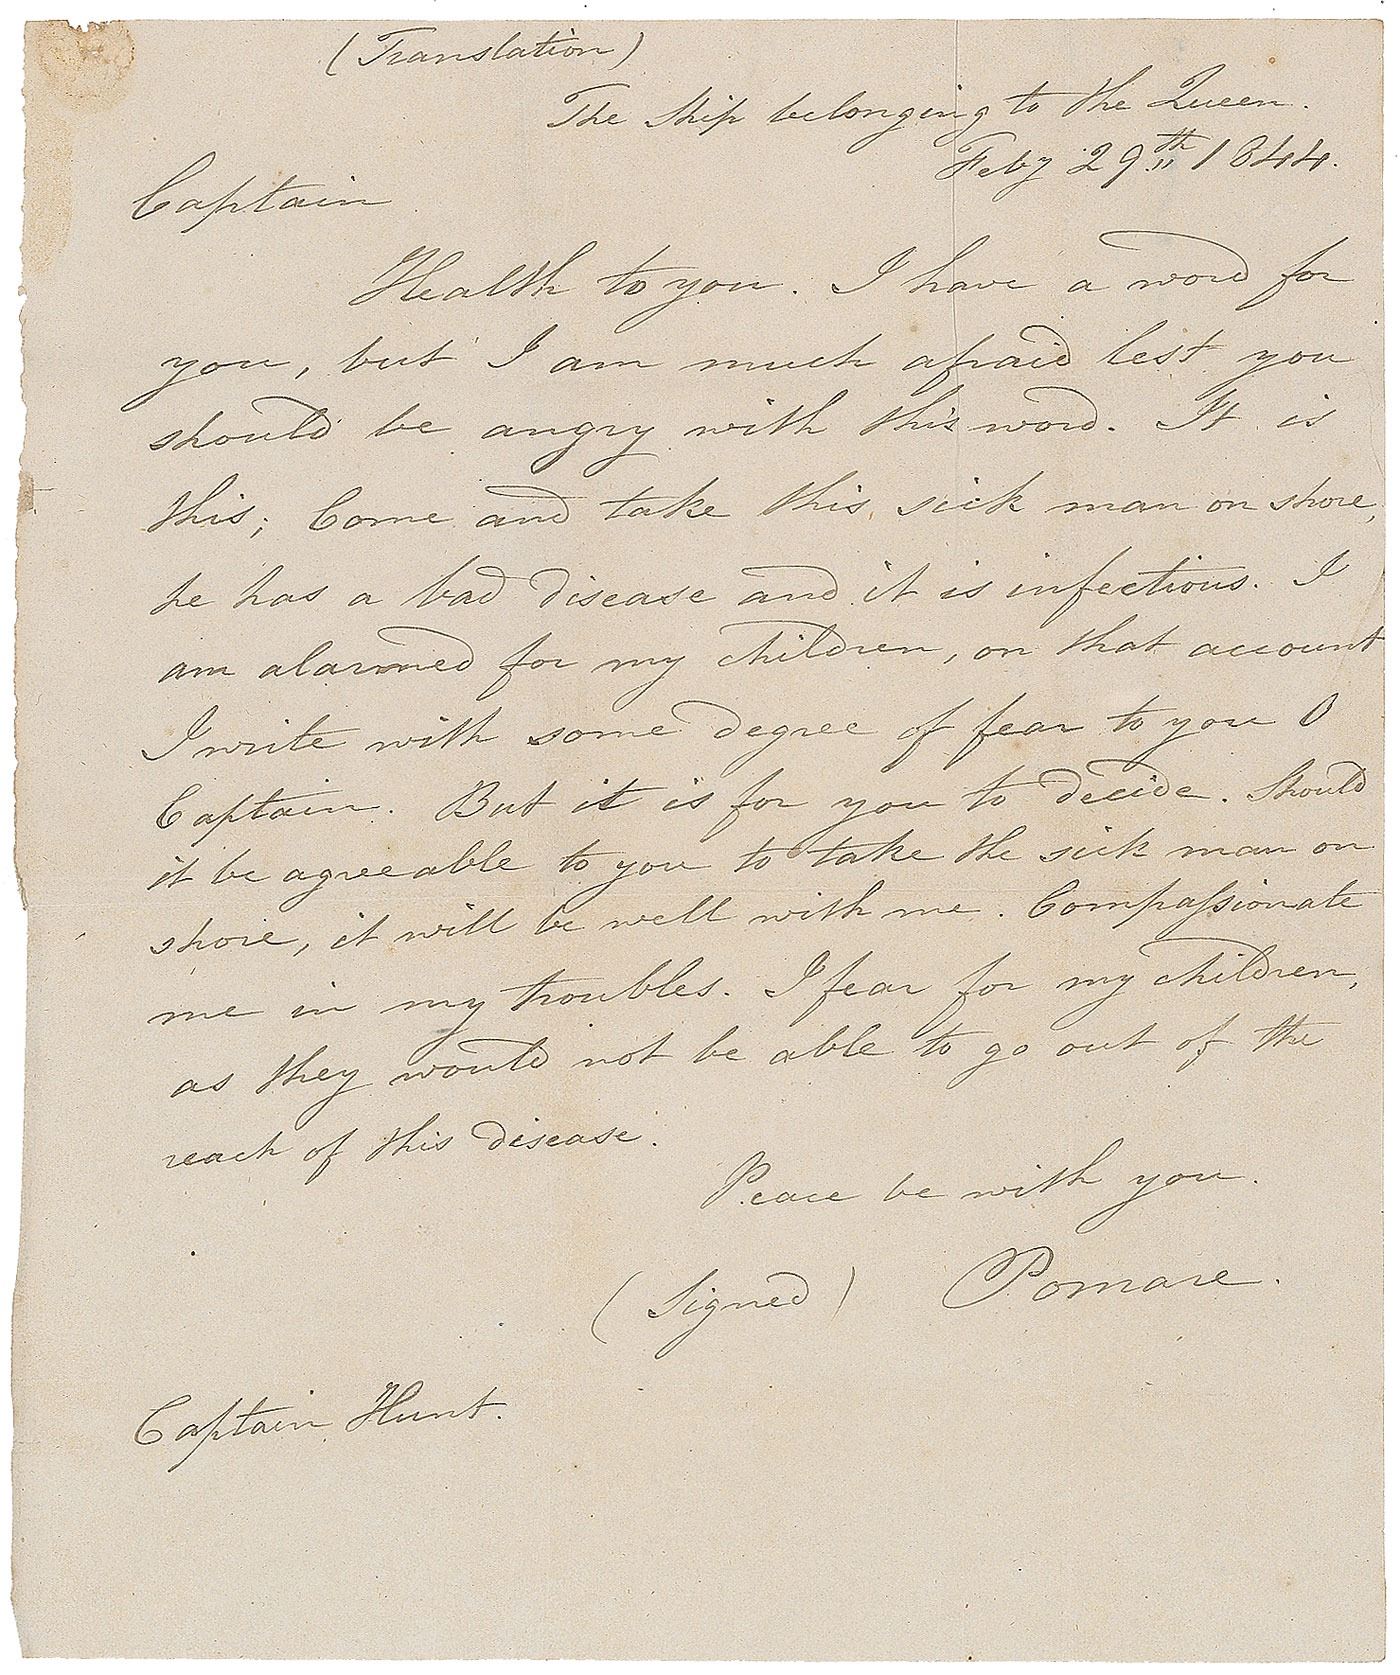 (Translation)
The Ship belonging to the Queen.
Feby 29th 1844.
Captain
Health to you. I have a word for
you, but I am much afraid lest you
should be angry with this word. It is
this; Come and take this sick man on shore,
he has a bad disease and it is infectious. I
am alarmed for my children, on that account
I write with some degree of fear to you O
Captain. But it is for you to decide. Should
it be agreeable to you to take the sick man on
shore, it will be well with me. Compassionate
me in my troubles. I fear for my children,
as they would not be able to go out of the
reach of this disease.
Peace be with you.
(Signed) Pomare.
Captain Hunt.